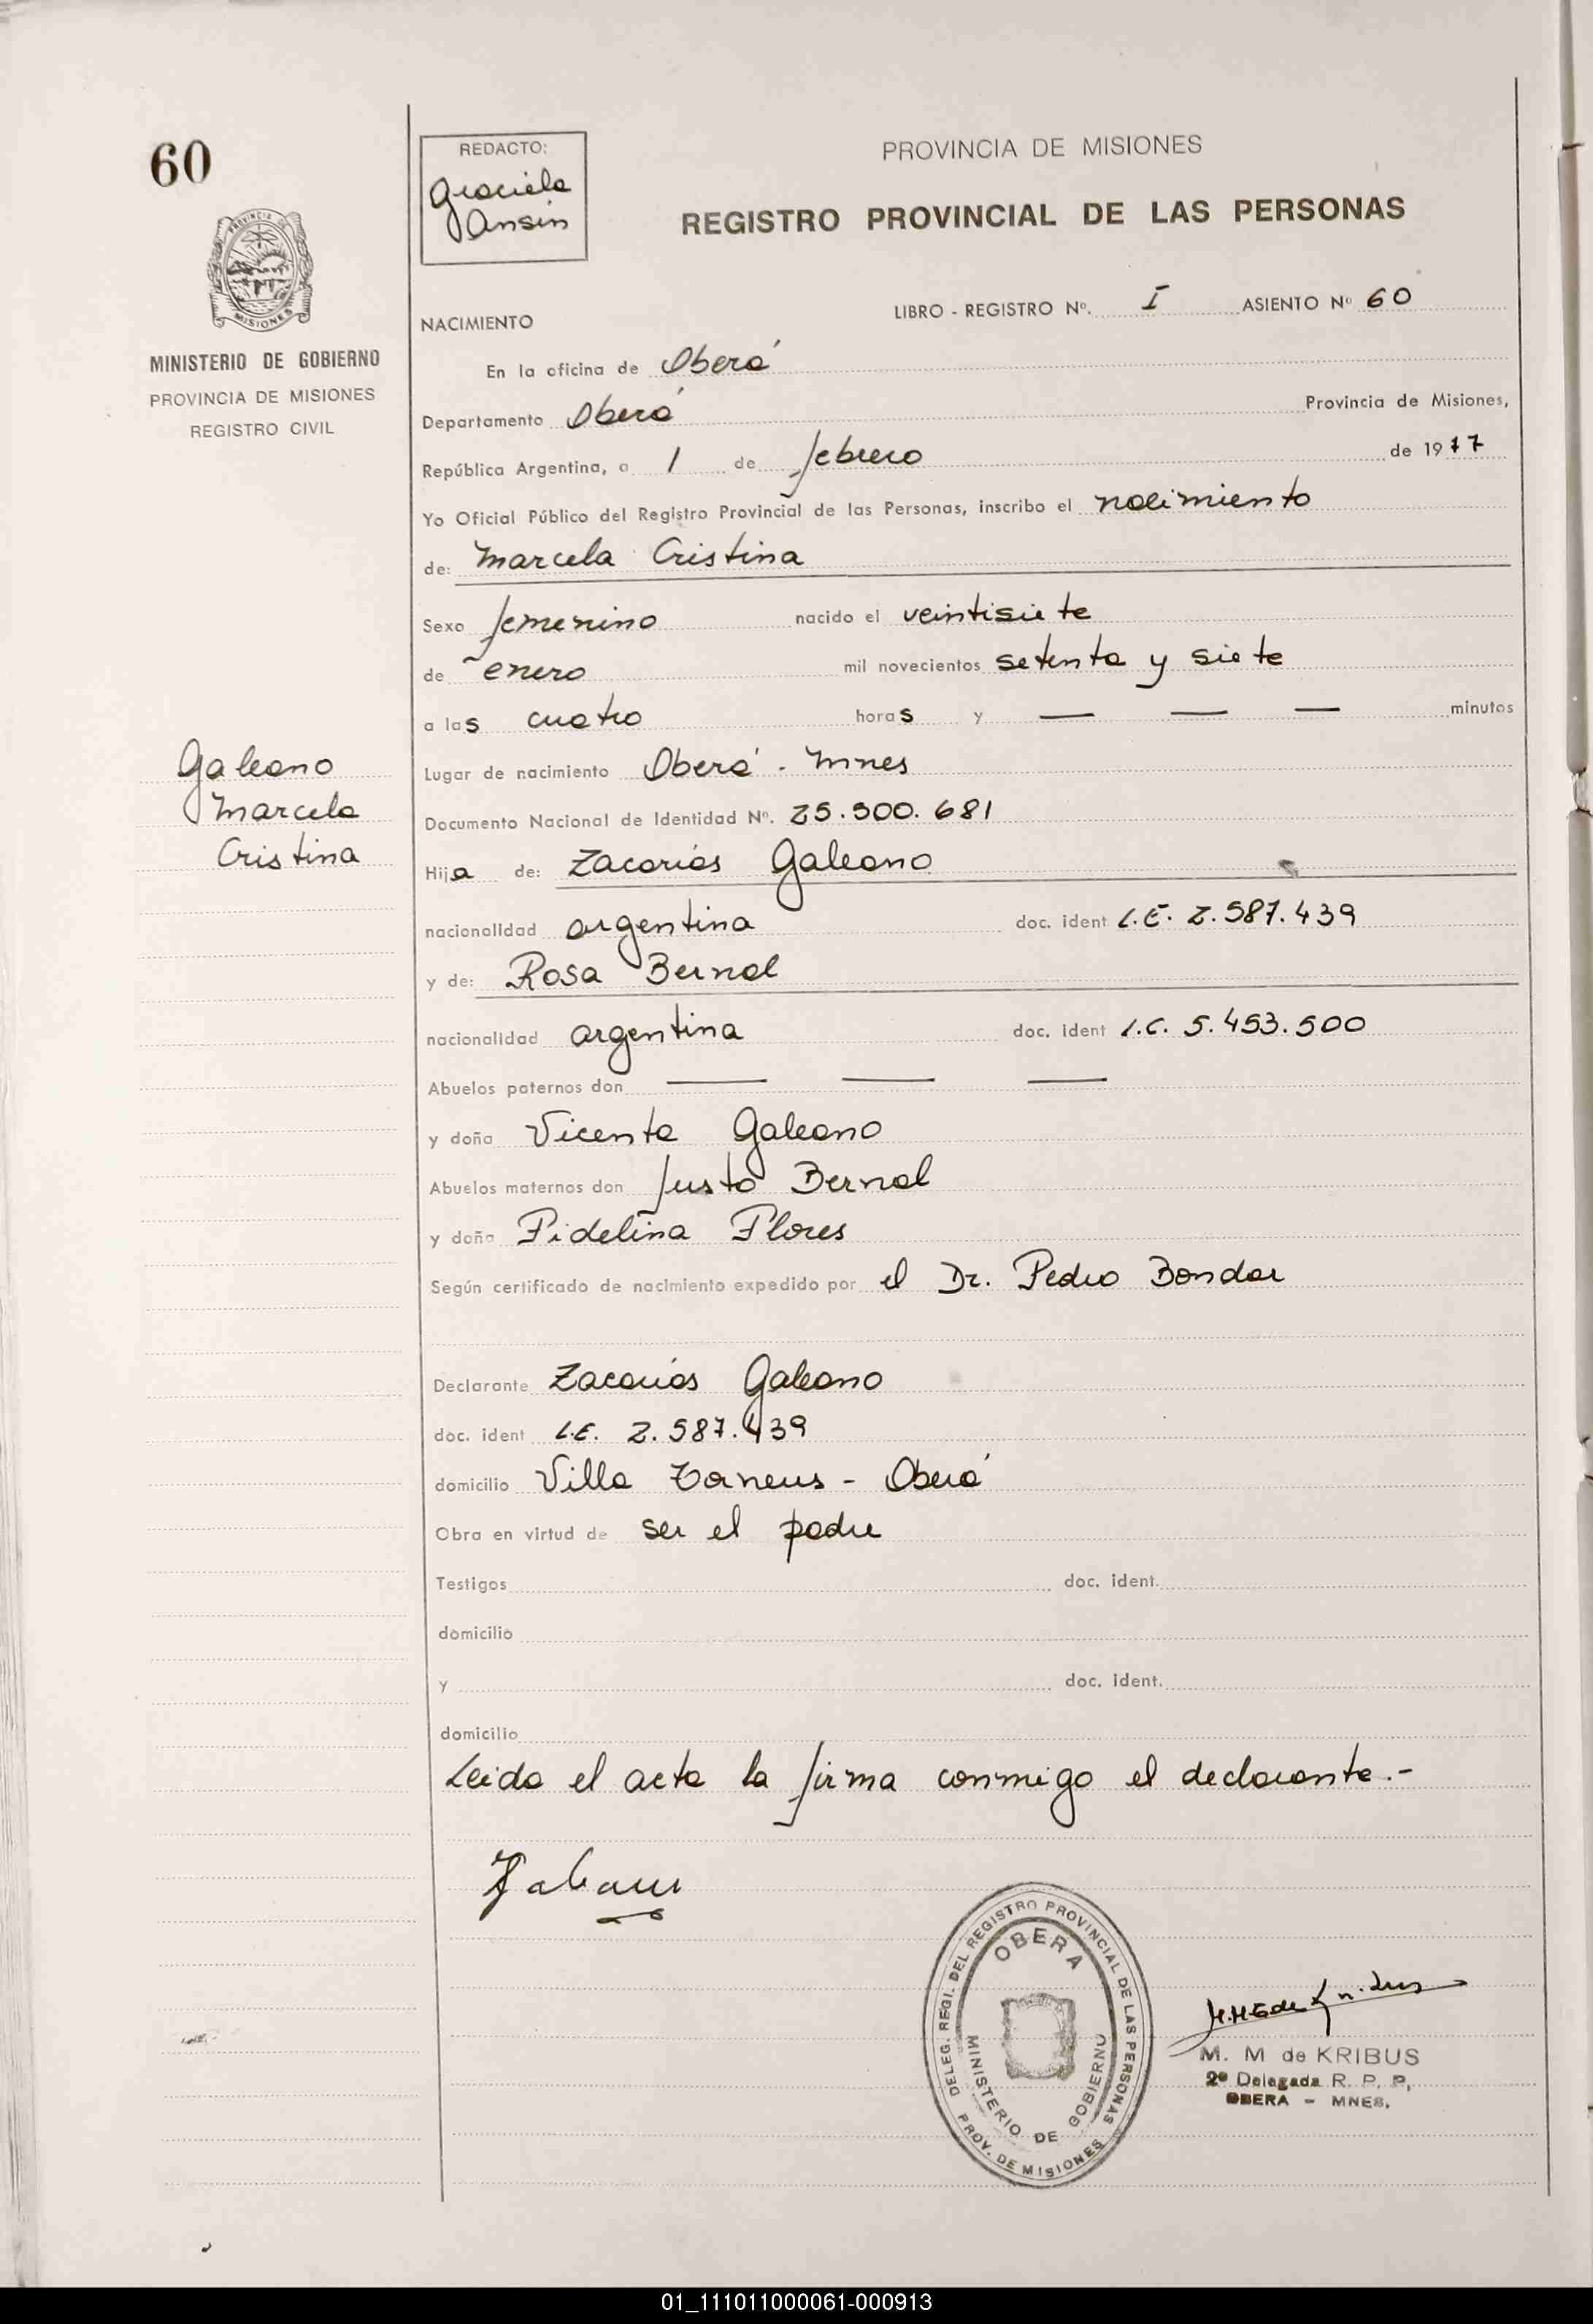 60
REDACTO:
Graciela
Ansin
PROVINCIA DE MISIONES
REGISTRO PROVINCIAL DE LAS PERSONAS
MISIONES
MINISTERIO DE GOBIERNO
PROVINCIA DE MISIONES
REGISTRO CIVIL
LIBRO - REGISTRO Nº. I ASIENTO Nº 60
NACIMIENTO
En la oficina de Oberá
Departamento Oberá Provincia de Misiones,
República Argentina, a 1 de febrero de 1977
Yo Oficial Público del Registro Provincial de las Personas, inscribo el nacimiento
de: Marcela Cristina
Sexo femenino nacido el veintisiete
de enero mil novecientos setenta y siete
a las cuatro horas y — — — minutos
Galeano
Marcela
Cristina
Lugar de nacimiento Oberá - Mnes
Documento Nacional de Identidad Nº. 25.500.681
Hija de: Zacarías Galeano
nacionalidad argentina doc. ident L.E. 2.587.439
y de: Rosa Bernal
nacionalidad argentina doc. ident L.C. 5.453.500
Abuelos paternos don — — —
y doña Vicenta Galeano
Abuelos maternos don Justo Bernal
y doña Fidelina Flores
Según certificado de nacimiento expedido por el Dr. Pedro Bondar
Declarante Zacarías Galeano
doc. ident L.E. 2.587.439
domicilio Villa - Oberá
Obra en virtud de ser el padre
Testigos doc. ident.
domicilio
y doc. ident.
domicilio
Leida el acta la firma conmigo el declarante.-
DELEG. REGI. DEL REGISTRO PROVINCIAL DE LAS PERSONAS
OBERA
MINISTERIO DE GOBIERNO
PROV. DE MISIONES
M. M de KRIBUS
2ª Delegada R. P. P.
OBERA - MNES.
01_111011000061-000913